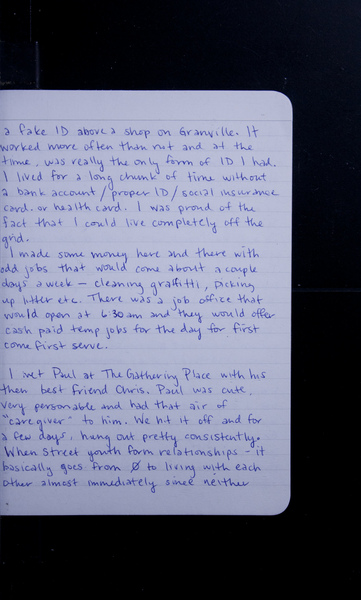 a fake ID above a shop on Granville. It
worked more often than not and at the
time, was really the only form of ID I had.
I lived for a long chunk of time without
a bank account / proper ID / social insurance
card. or health card. I was proud of the
fact that I could live completely off the
grid.
I made some money here and there with
odd jobs that would come about a couple
days a week - cleaning graffitti, picking
up litter etc. There was a job office that
would open at 6:30am and they would offer
cash paid temp jobs for the day for first
come first serve.
I met Paul at The Gathering Place with his
then best friend Chris. Paul was cute,
very personable and had that air of
"caregiver" to him. We hit it off and for
a few days, hung out pretty consistently.
When street youth form relationships - it
basically goes from Ø to living with each
other almost immediately since neither